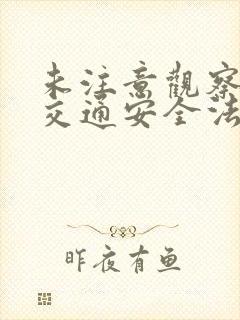 未注意觀察
交通安全法
昨夜有鱼